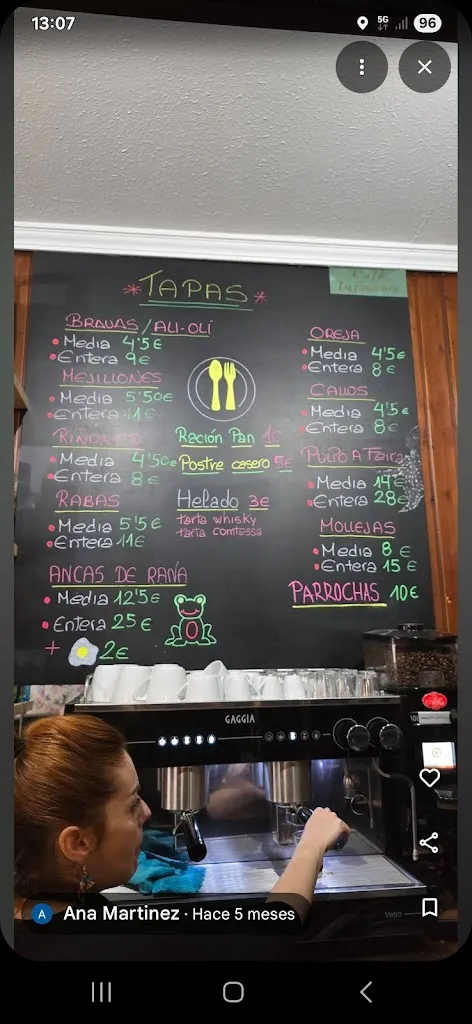 13:07
5G
96
*TAPAS*
BRAVAS/ALI-OLI
Media 4'5€
Entera 9€
MEJILLONES
Media 5'50€
Entera 11€
Media 4'50€
Entera 8€
RABAS
Media 5'5€
Entera 11€
ANCAS DE RANA
Media 12'5€
Entera 25€
+ 2€
Ración Pan 1€
Postre casero 5€
Helado 3€
tarta whisky
tarta comtessa
OREJA
Media 4'5€
Entera 8€
CALLOS
Media 4'5€
Entera 8€
PULPO A Feira
Media 14€
Entera 28€
MOLLEJAS
Media 8€
Entera 15€
PARROCHAS 10€
GAGGIA
Vetro
A
Ana Martinez · Hace 5 meses